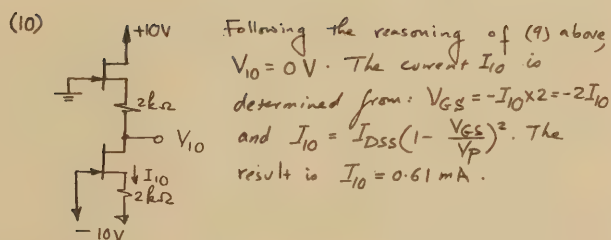 (10)
+10V
2kΩ
V10
I10
2kΩ
-10V
Following the reasoning of (9) above,
V10 = 0 V. The current I10 is
determined from: VGS = -I10×2 = -2I10
and I10 = IDSS(1 - VGS/VP)². The
result is I10 = 0.61 mA.